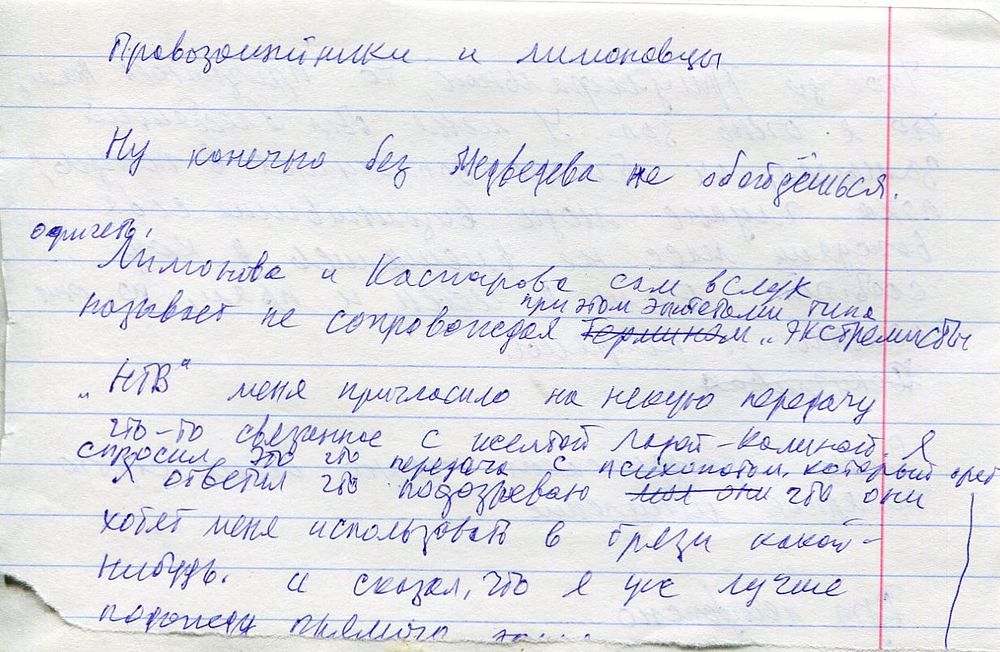 Правозащитники и лимоновцы
Ну конечно без Медведева не обойдёшься.
Лимонова и Каспарова сам вслух
называет не сопровождая термином при этом эпитетами типа „экстремисты
„НТВ" меня пригласило на некую передачу
что-то связанное с желтой Ладой-Калиной. Я
спросил это что передача с психопатом, который орёт
Я ответил что подозреваю что они
хотят меня использовать в грязи какой-
нибудь. и сказал, что я уж лучше
подожду прямого